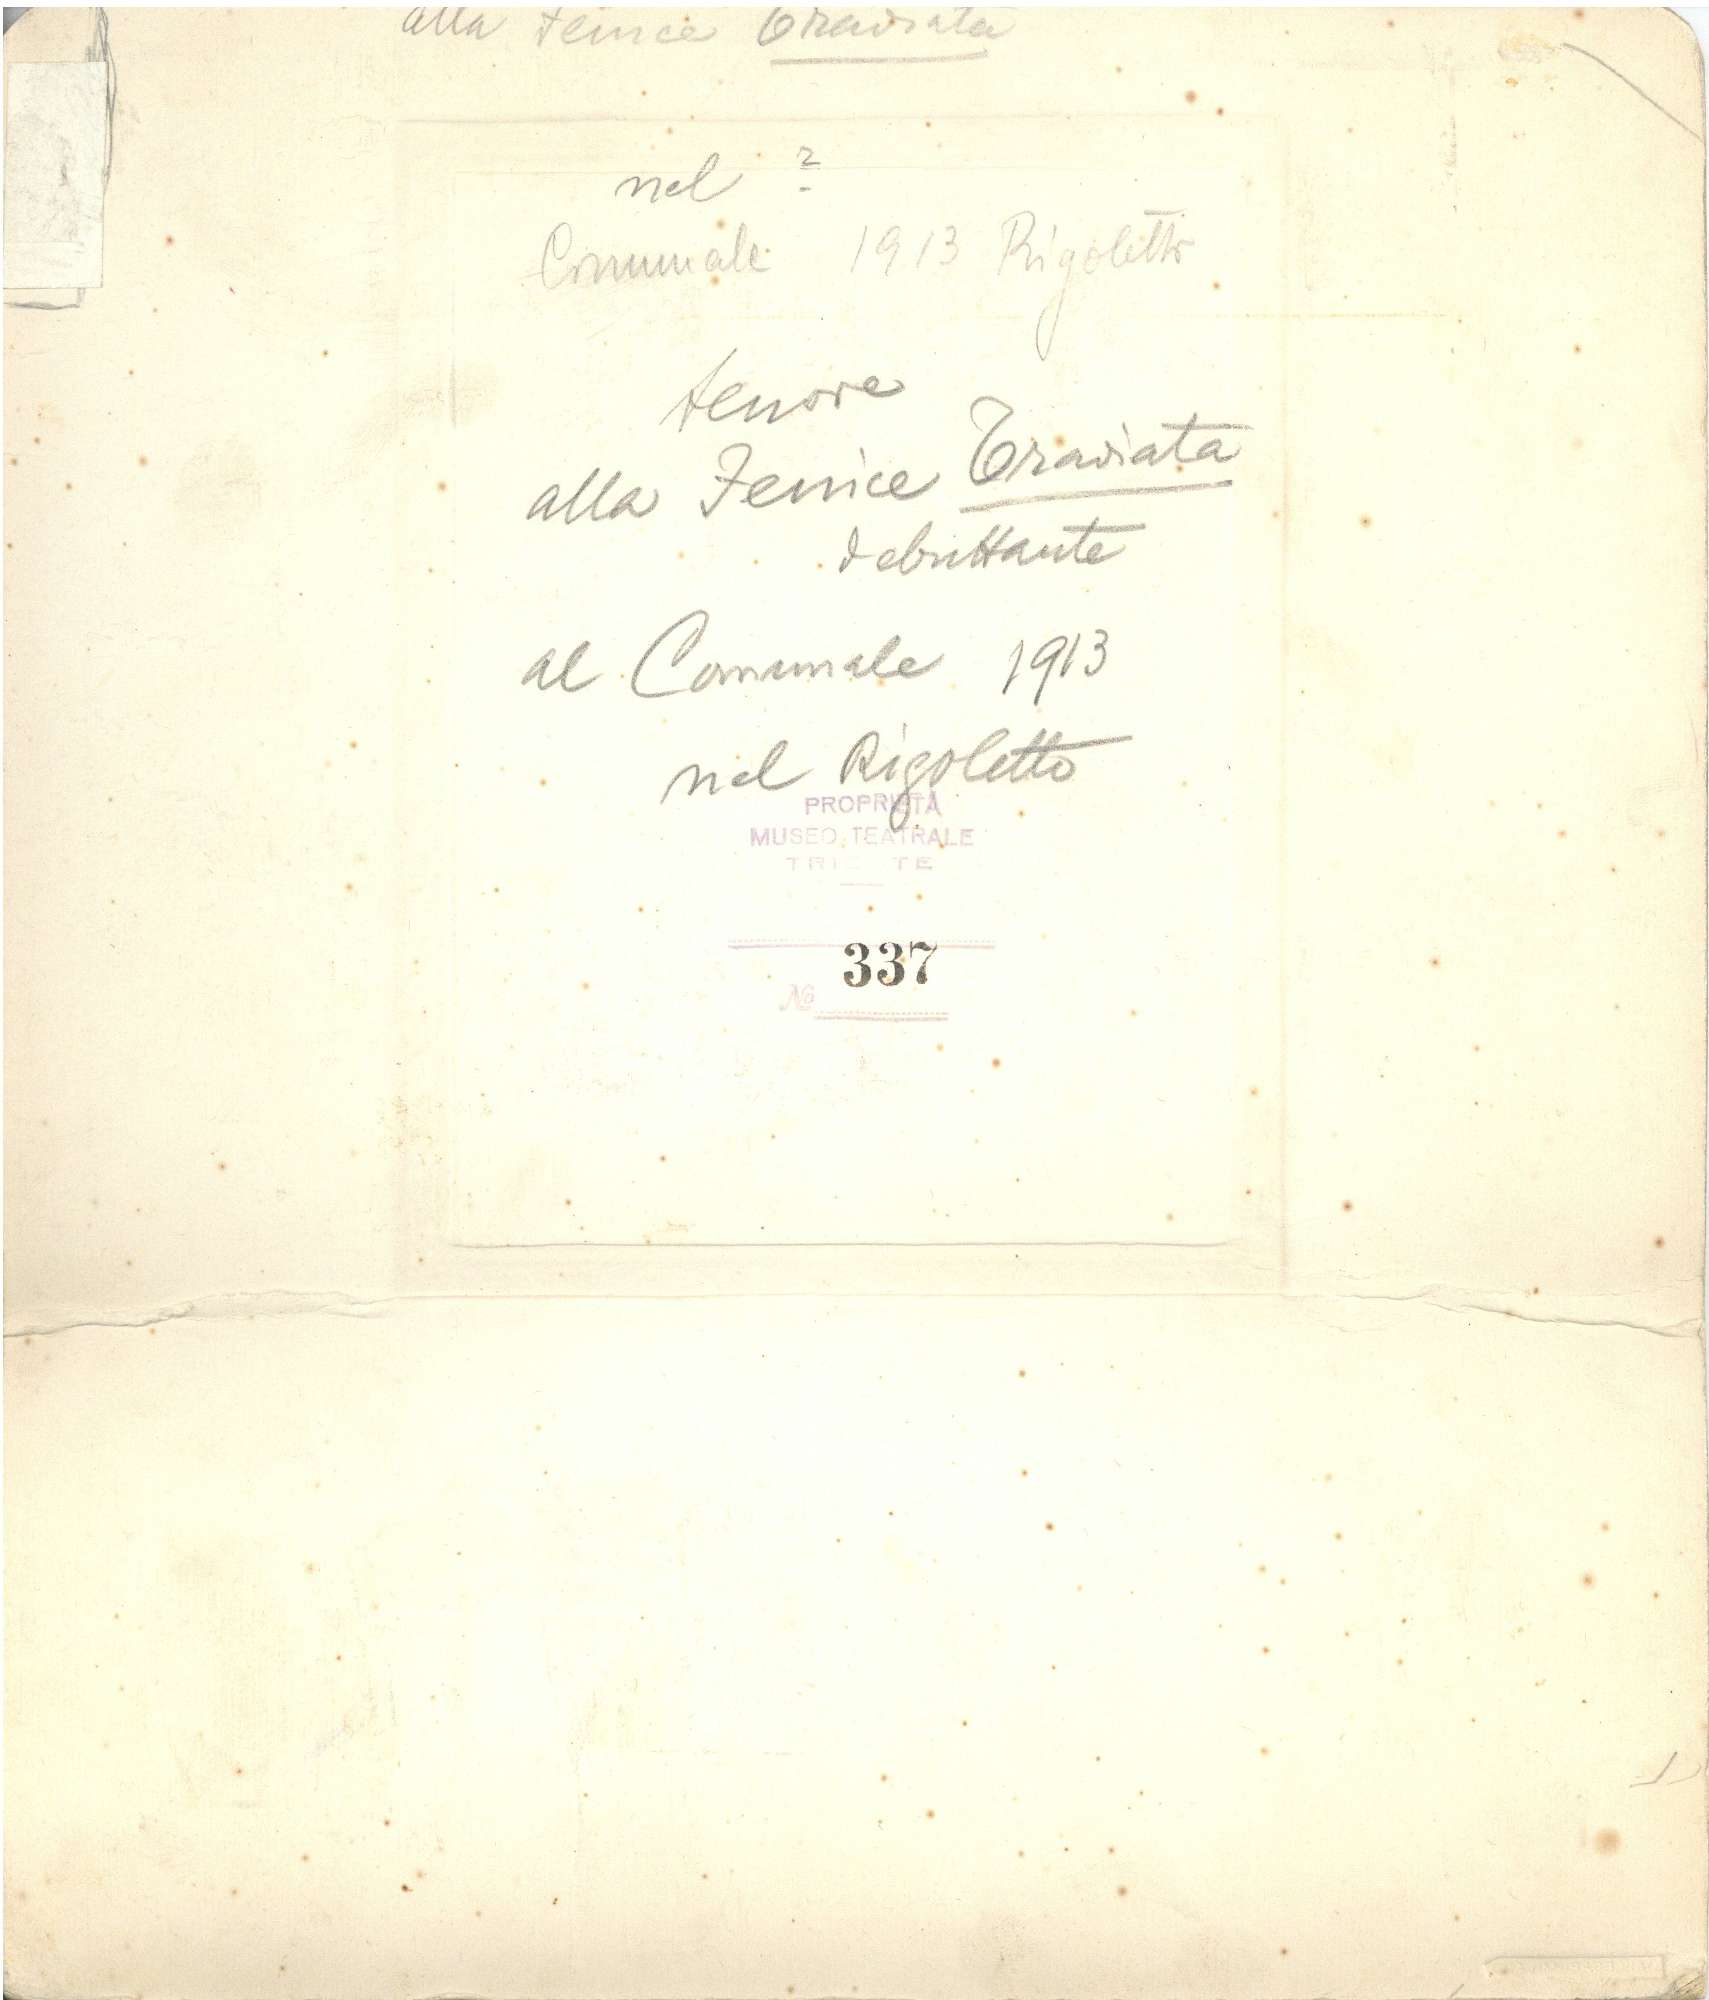 alla Fenice Traviata
nel ?
Comunale 1913 Rigoletto
tenore
alla Fenice Traviata
debuttante
al Comunale 1913
nel Rigoletto
PROPRIETÀ
MUSEO TEATRALE
TRIESTE
337
No